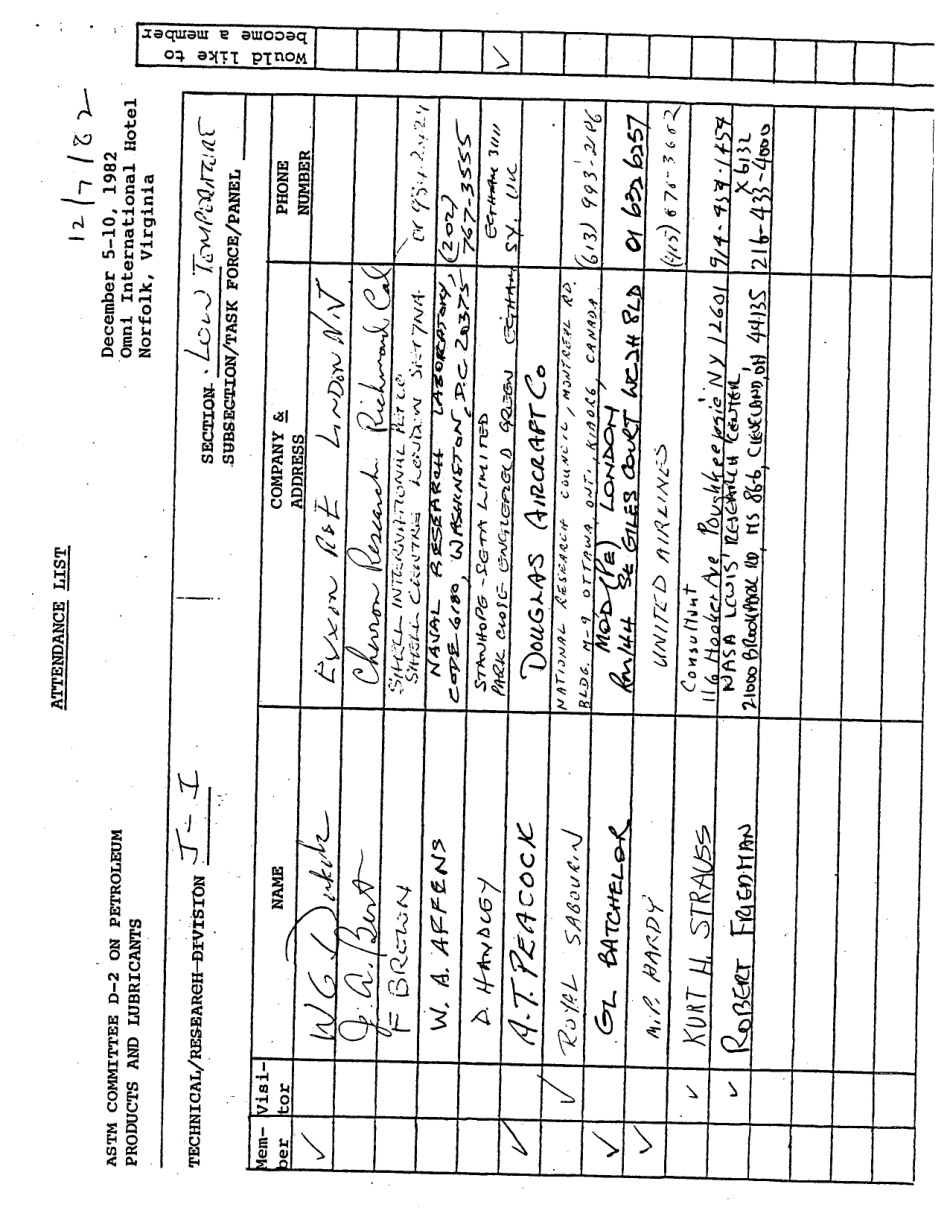 ATTENDANCE LIST
12/7/82
ASTM COMMITTEE D-2 ON PETROLEUM
PRODUCTS AND LUBRICANTS
December 5-10, 1982
Omni International Hotel
Norfolk, Virginia
TECHNICAL/RESEARCH DIVISION J-I
SECTION LOW TEMPERATURE
SUBSECTION/TASK FORCE/PANEL
Mem-
ber
Visi-
tor
NAME
COMPANY &
ADDRESS
PHONE
NUMBER
Would like to
become a member
✓ W G
Exxon R&E LINDEN N.J
J. A. Bert
Chevron Research Richmond Cal
F BREWN
SHELL INTERNATIONAL PET CO
SHELL CENTRE LONDON SE1 7NA
W. A. AFFENS
NAVAL RESEARCH LABORATORY, (202)
CODE 6180, WASHINGTON, D.C 20375 767-3555
D. HANDLEY
STANHOPE-SETA LIMITED
PARK CLOSE ENGLEFIELD GREEN EGHAM SY. UK EGHAM 3111 ✓
✓ A.T. PEACOCK
DOUGLAS AIRCRAFT Co
✓ ROYAL SABOURIN
NATIONAL RESEARCH COUNCIL, MONTREAL RD
BLDG. M-9 OTTAWA, ONT., K1A0R6, CANADA (613) 993-2196
✓ GL BATCHELOR
MOD (PE) LONDON
Rm 144 St GILES COURT WC2H 8LD 01 632 6257
✓ M.P. HARDY
UNITED AIRLINES (415) 876-3662
✓ KURT H. STRAUSS
Consultant
116 Hooker Ave Poughkeepsie NY 12601 914-454-1454
✓ ROBERT FRIEDMAN
NASA LEWIS RESEARCH CENTER
21000 BROOKPARK RD, MS 86-6, CLEVELAND, OH 44135 216-433-4000
x 6132